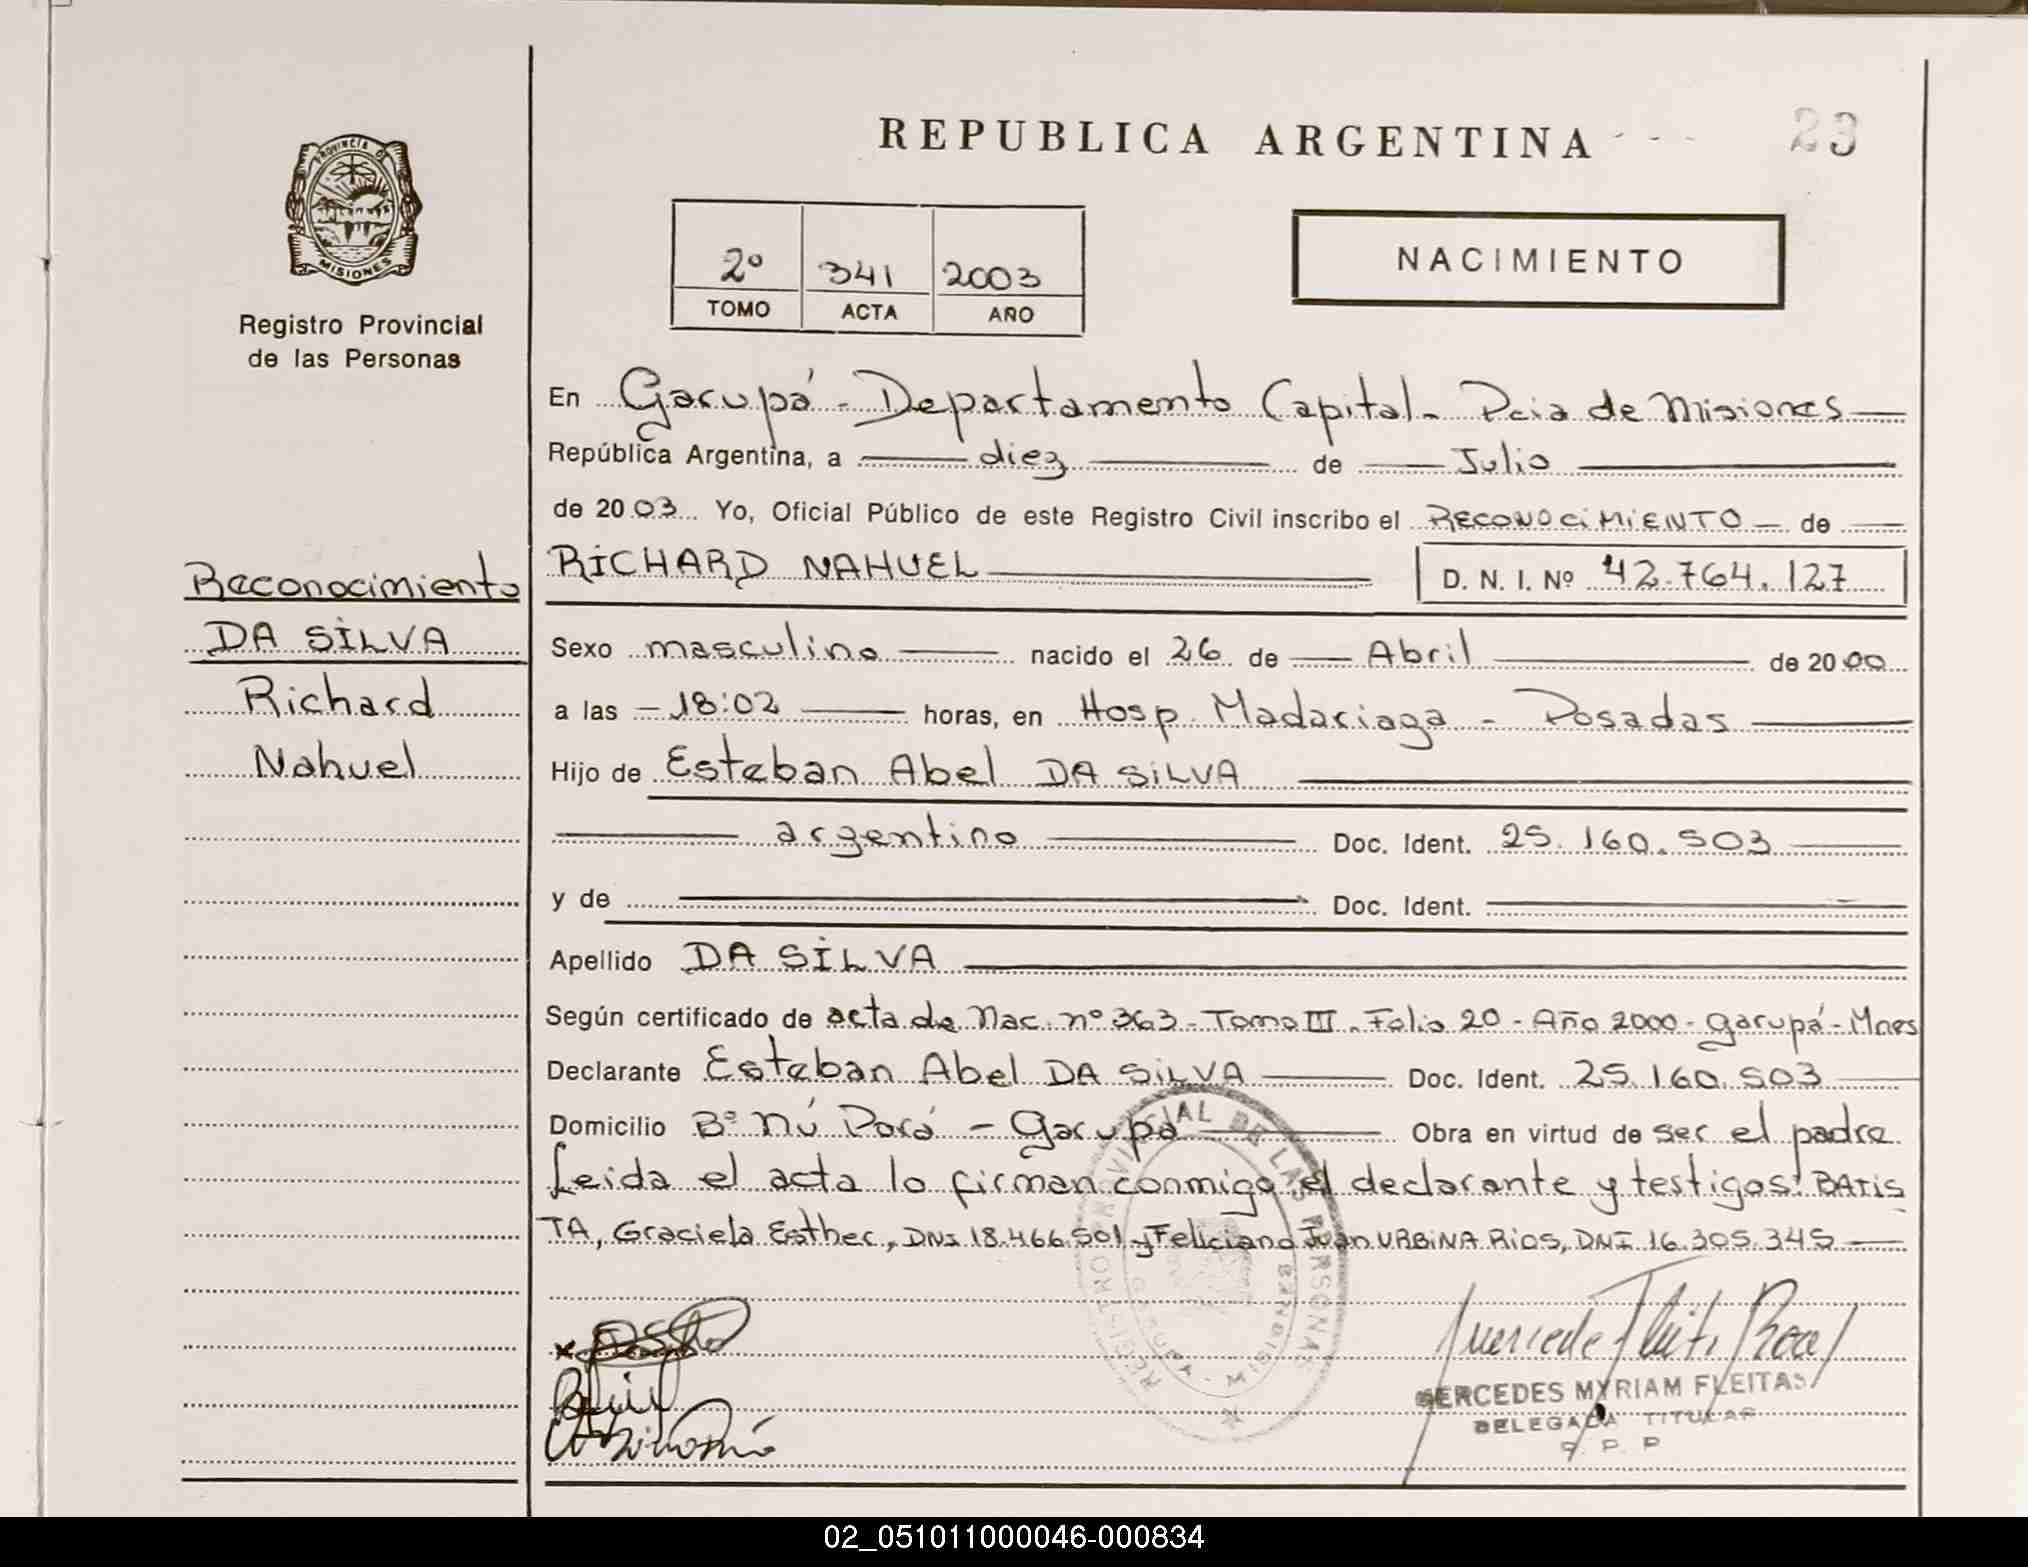 REPUBLICA ARGENTINA
23
PROVINCIA D
MISIONES
Registro Provincial
de las Personas
2º 341 2003
TOMO ACTA AÑO
NACIMIENTO
En Garupá - Departamento Capital - Pcia de Misiones
República Argentina, a diez de Julio
de 2003 Yo, Oficial Público de este Registro Civil inscribo el RECONOCIMIENTO de
RICHARD NAHUEL D. N. I. Nº 42.764.127
Reconocimiento
DA SILVA
Richard
Nahuel
Sexo masculino nacido el 26 de Abril de 2000
a las 18:02 horas, en Hosp. Madariaga - Posadas
Hijo de Esteban Abel DA SILVA
argentino Doc. Ident. 25.160.503
y de Doc. Ident.
Apellido DA SILVA
Según certificado de acta de Nac. nº 363 - Tomo III - Folio 20 - Año 2000 - Garupá - Mnes
Declarante Esteban Abel DA SILVA Doc. Ident. 25.160.503
Domicilio Bº Ñú Porá - Garupá Obra en virtud de ser el padre
Leida el acta lo firman conmigo el declarante y testigos: BATIS
TA, Graciela Esther, DNI 18.466.501 y Feliciano Juan URBINA RIOS, DNI 16.305.345
REGISTRO PROVINCIAL DE LAS PERSONAS
GARUPA - MISIONES
MERCEDES MYRIAM FLEITAS
DELEGADA TITULAR
R. P. P
02_051011000046-000834